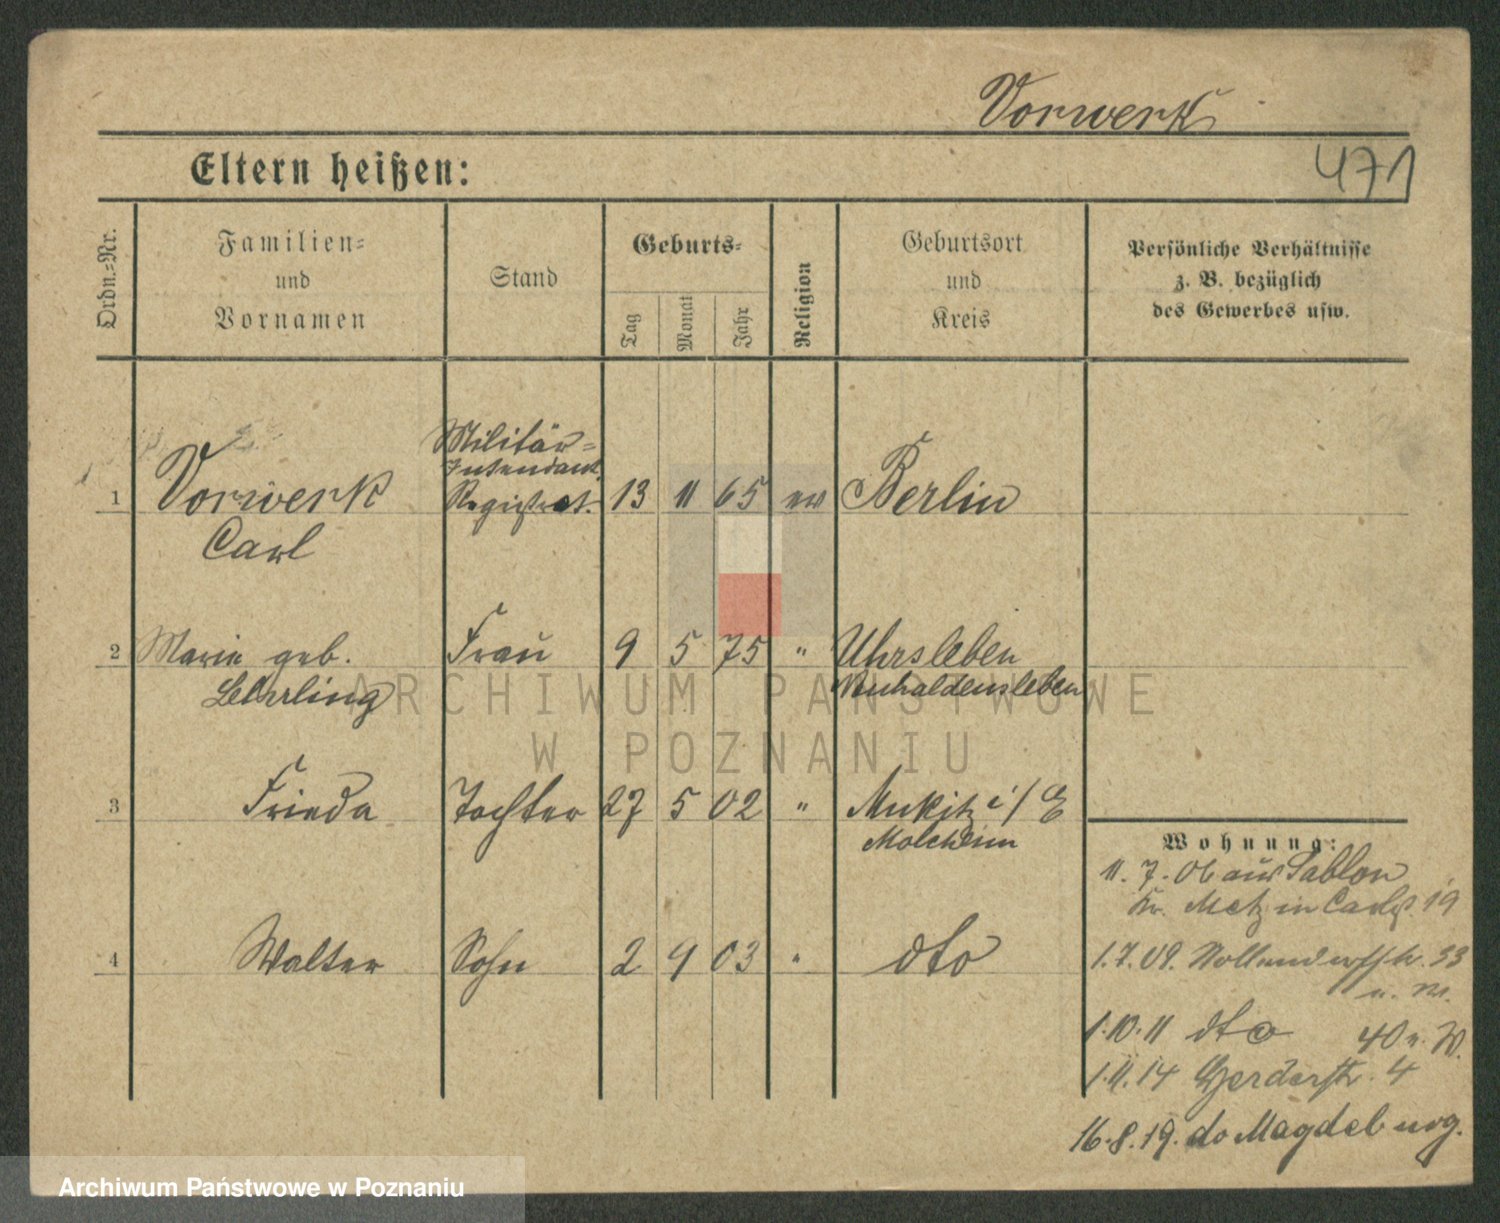 Vorwerk
471
Eltern heißen:
Ordn.-Nr.
Familien-
und
Vornamen
Stand
Geburts-
Tag
Monat
Jahr
Religion
Geburtsort
und
Kreis
Persönliche Verhältnisse
z. B. bezüglich
des Gewerbes usw.
Militär-
Intendant.
Registrat.
1 Vorwerk 13 11 65 ev Berlin
Carl
2 Marie geb. Frau 9 5 75 " Uhrsleben
Neuhaldensleben
3 Frieda Tochter 27 5 02 " i/E
Molsheim
Wohnung:
11. 7. 06 aus Sablon
Kr. Metz in Carlst. 19
4 Walter Sohn 2 4 03 " dto
1.7.09. Nollendorfstr. 33
1.10.11 dto 40
1.11.14 Herderstr. 4
16.8.19. do Magdeburg.
ARCHIWUM PAŃSTWOWE
W POZNANIU
Archiwum Państwowe w Poznaniu